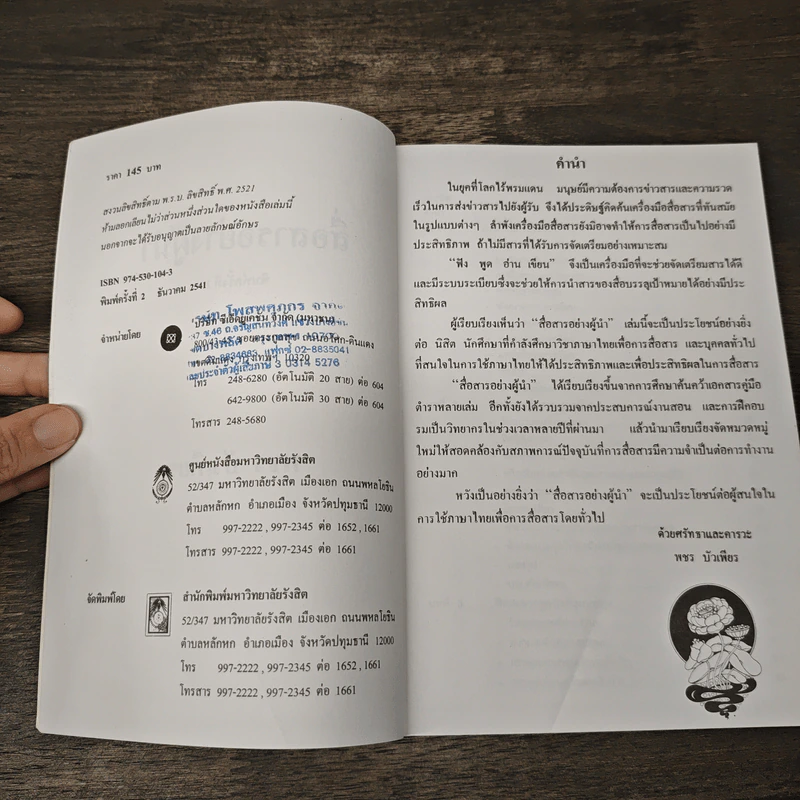 ราคา 145 บาท
สงวนลิขสิทธิ์ตาม พ.ร.บ. ลิขสิทธิ์ พ.ศ. 2521
ห้ามลอกเลียนไม่ว่าส่วนหนึ่งส่วนใดของหนังสือเล่มนี้
นอกจากจะได้รับอนุญาตเป็นลายลักษณ์อักษร
ISBN 974-530-104-3
พิมพ์ครั้งที่ 2 ธันวาคม 2541
จำหน่ายโดย
บริษัท ซีเอ็ดยูเคชั่น จำกัด (มหาชน)
10320
โทร 248-6280 (อัตโนมัติ 20 สาย) ต่อ 604
642-9800 (อัตโนมัติ 30 สาย) ต่อ 604
โทรสาร 248-5680
ศูนย์หนังสือมหาวิทยาลัยรังสิต
52/347 มหาวิทยาลัยรังสิต เมืองเอก ถนนพหลโยธิน
ตำบลหลักหก อำเภอเมือง จังหวัดปทุมธานี 12000
โทร 997-2222, 997-2345 ต่อ 1652, 1661
โทรสาร 997-2222, 997-2345 ต่อ 1661
จัดพิมพ์โดย
สำนักพิมพ์มหาวิทยาลัยรังสิต
52/347 มหาวิทยาลัยรังสิต เมืองเอก ถนนพหลโยธิน
ตำบลหลักหก อำเภอเมือง จังหวัดปทุมธานี 12000
โทร 997-2222, 997-2345 ต่อ 1652, 1661
โทรสาร 997-2222, 997-2345 ต่อ 1661
คำนำ
ในยุคที่โลกไร้พรมแดน มนุษย์มีความต้องการข่าวสารและความรวด
เร็วในการส่งข่าวสารไปยังผู้รับ จึงได้ประดิษฐ์คิดค้นเครื่องมือสื่อสารที่ทันสมัย
ในรูปแบบต่างๆ ลำพังเครื่องมือสื่อสารยังมิอาจทำให้การสื่อสารเป็นไปอย่างมี
ประสิทธิภาพ ถ้าไม่มีสารที่ได้รับการจัดเตรียมอย่างเหมาะสม
“ฟัง พูด อ่าน เขียน” จึงเป็นเครื่องมือที่จะช่วยจัดเตรียมสารได้ดี
และมีระบบระเบียบซึ่งจะช่วยให้การนำสารของสื่อบรรลุเป้าหมายได้อย่างมีประ
สิทธิผล
ผู้เรียบเรียงเห็นว่า “สื่อสารอย่างผู้นำ” เล่มนี้จะเป็นประโยชน์อย่างยิ่ง
ต่อ นิสิต นักศึกษาที่กำลังศึกษาวิชาภาษาไทยเพื่อการสื่อสาร และบุคคลทั่วไป
ที่สนใจในการใช้ภาษาไทยให้ได้ประสิทธิภาพและเพื่อประสิทธิผลในการสื่อสาร
“สื่อสารอย่างผู้นำ” ได้เรียบเรียงขึ้นจากการศึกษาค้นคว้าเอกสารคู่มือ
ตำราหลายเล่ม อีกทั้งยังได้รวบรวมจากประสบการณ์งานสอน และการฝึกอบ
รมเป็นวิทยากรในช่วงเวลาหลายปีที่ผ่านมา แล้วนำมาเรียบเรียงจัดหมวดหมู่
ใหม่ให้สอดคล้องกับสภาพการณ์ปัจจุบันที่การสื่อสารมีความจำเป็นต่อการทำงาน
อย่างมาก
หวังเป็นอย่างยิ่งว่า “สื่อสารอย่างผู้นำ” จะเป็นประโยชน์ต่อผู้สนใจใน
การใช้ภาษาไทยเพื่อการสื่อสารโดยทั่วไป
ด้วยศรัทธาและคารวะ
พชร บัวเพียร